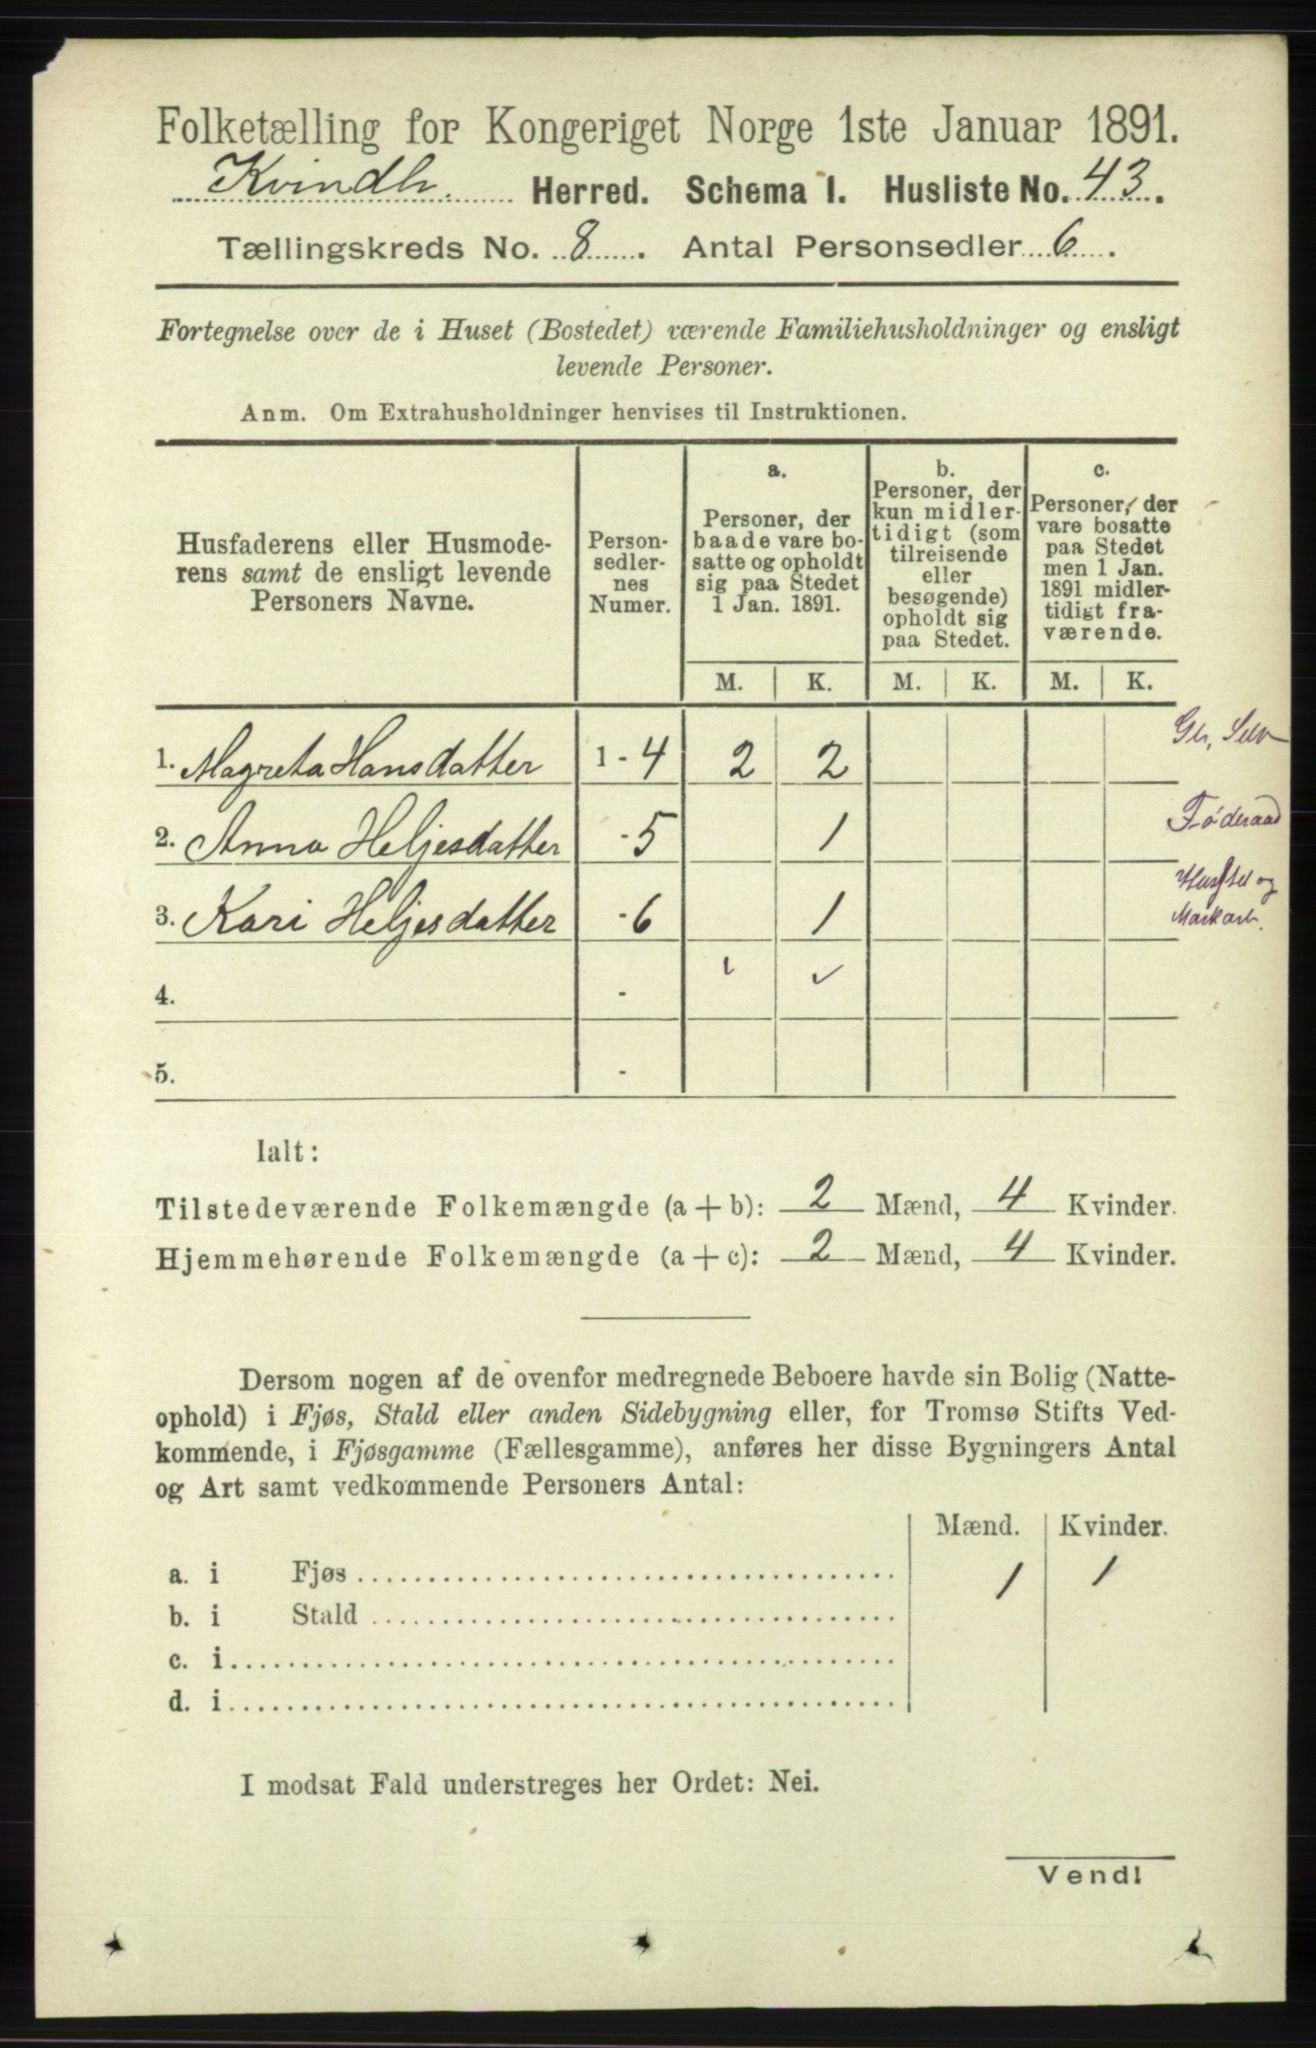 Folketælling for Kongeriget Norge 1ste Januar 1891.
Kvindh. Herred. Schema I. Husliste No. 43.
Tællingskreds No. 8. Antal Personsedler 6.
Fortegnelse over de i Huset (Bostedet) værende Familiehusholdninger og ensligt
levende Personer.
Anm. Om Extrahusholdninger henvises til Instruktionen.
Husfaderens eller Husmode-
rens samt de ensligt levende
Personers Navne.
Person-
sedler-
nes
Numer.
a.
Personer, der
baade vare bo-
satte og opholdt
sig paa Stedet
1 Jan. 1891.
b.
Personer, der
kun midler-
tidigt (som
tilreisende
eller
besøgende)
opholdt sig
paa Stedet.
c.
Personer, der
vare bosatte
paa Stedet
men 1 Jan.
1891 midler-
tidigt fra-
værende.
M. K. M. K. M. K.
1. Magreta Hansdatter 1 - 4 2 2 Gb, Selv
2. Anna Heljesdatter - 5 1 Føderaad
3. Kari Heljesdatter - 6 1 Husstel og
Markarb.
4. -
5. -
Ialt:
Tilstedeværende Folkemængde (a + b): 2 Mænd, 4 Kvinder.
Hjemmehørende Folkemængde (a + c): 2 Mænd, 4 Kvinder.
Dersom nogen af de ovenfor medregnede Beboere havde sin Bolig (Natte-
ophold) i Fjøs, Stald eller anden Sidebygning eller, for Tromsø Stifts Ved-
kommende, i Fjøsgamme (Fællesgamme), anføres her disse Bygningers Antal
og Art samt vedkommende Personers Antal:
Mænd. Kvinder.
a. i Fjøs 1 1
b. i Stald
c. i
d. i
I modsat Fald understreges her Ordet: Nei.
Vend!